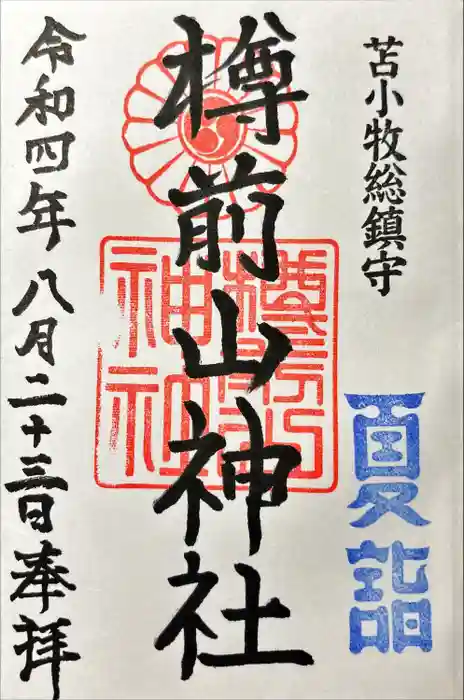 苫小牧総鎮守
夏詣
樽前山神社
樽前山
神社
令和四年八月二十三日奉拝